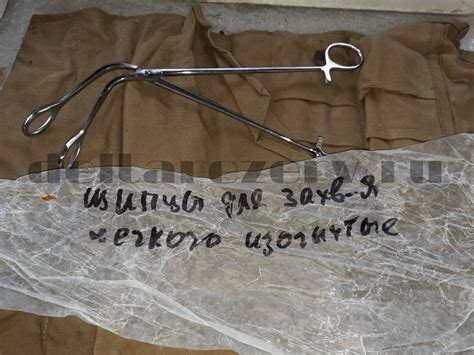 deltarezerv.ru
щипцы для захв-я
легкого изогнутые